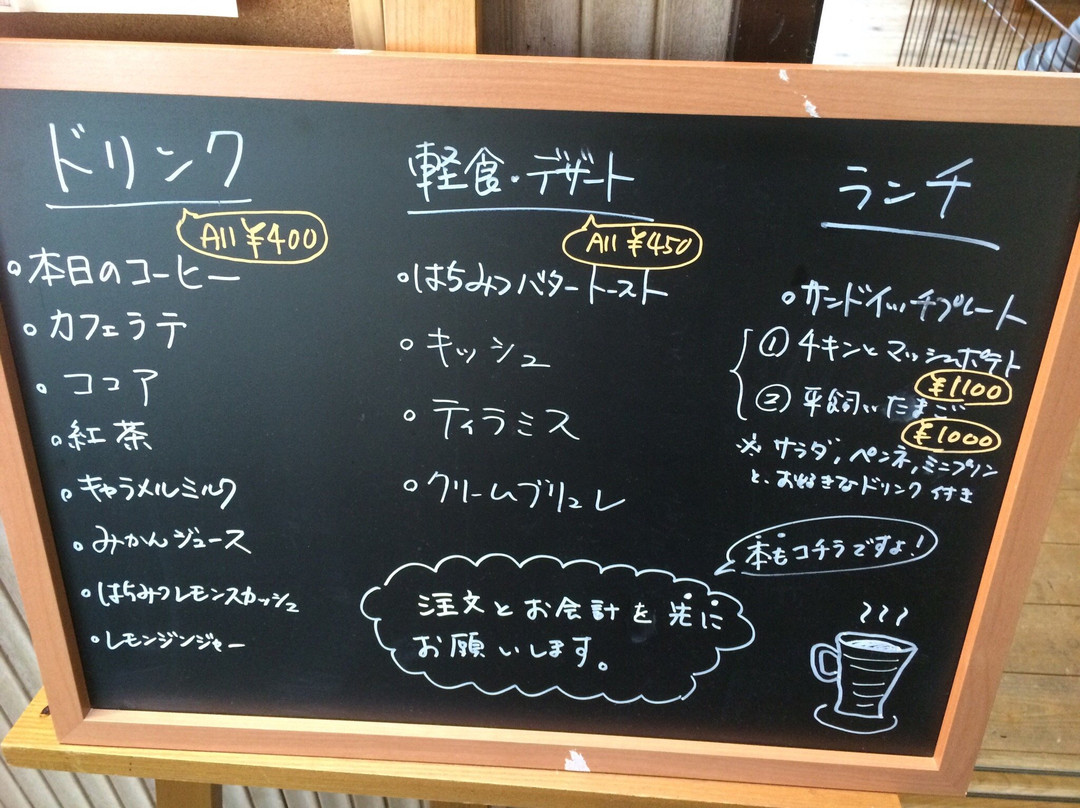 ドリンク
All ¥400
・本日のコーヒー
・カフェラテ
・ココア
・紅茶
・キャラメルミルク
・みかんジュース
・はちみつレモンスカッシュ
・レモンジンジャー
軽食・デザート
All ¥450
・はちみつバタートースト
・キッシュ
・ティラミス
・クリームブリュレ
ランチ
・サンドイッチプレート
① チキンとマッシュポテト
¥1100
② 平飼いたまご
¥1000
※ サラダ、ペンネ、ミニプリン
と、お好きなドリンク付き
本もコチラですよ!
注文とお会計を先に
お願いします。